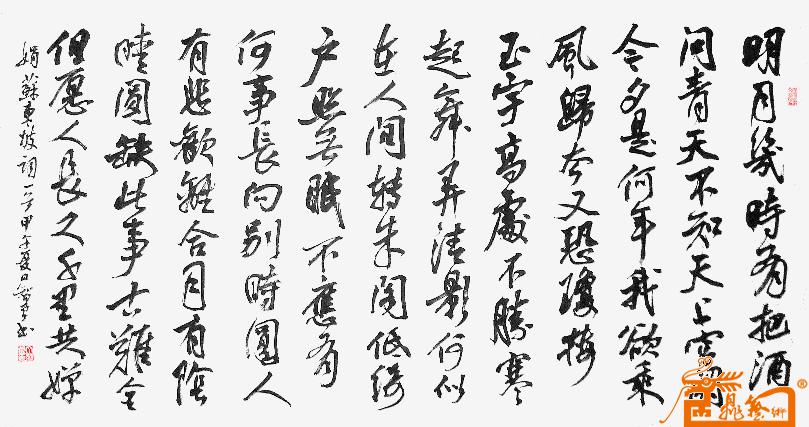 明月幾時有把酒
問青天不知天上宮闕
今夕是何年我欲乘
風歸去又恐瓊樓
玉宇高處不勝寒
起舞弄清影何似
在人間轉朱閣低綺
户照無眠不應有
何事長向别時圓人
有悲歡離合月有陰
晴圓缺此事古難全
但愿人長久千里共嬋
娟蘇東坡詞一首甲午夏日
藝術
®